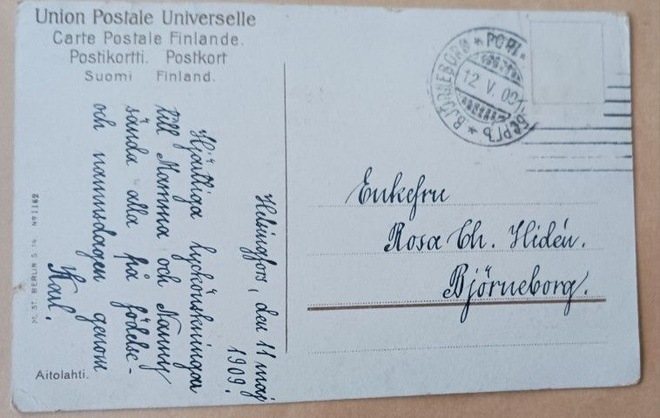 Union Postale Universelle
Carte Postale Finlande.
Postikortti. Postkort
Suomi Finland.
BJÖRNEBORG * PORI *
12.V.09
БЕРГЪ
Helsingfors, den 11 maj
1909.
Hjärtliga lyckönskningar
till Mamma och Nanny
sända alla på födelse-
och namnsdagen genom
Karl.
Enkefru
Rosa Ch. Hidén.
Björneborg.
M. ST. BERLIN S. 14. Nº 1162
Aitolahti.